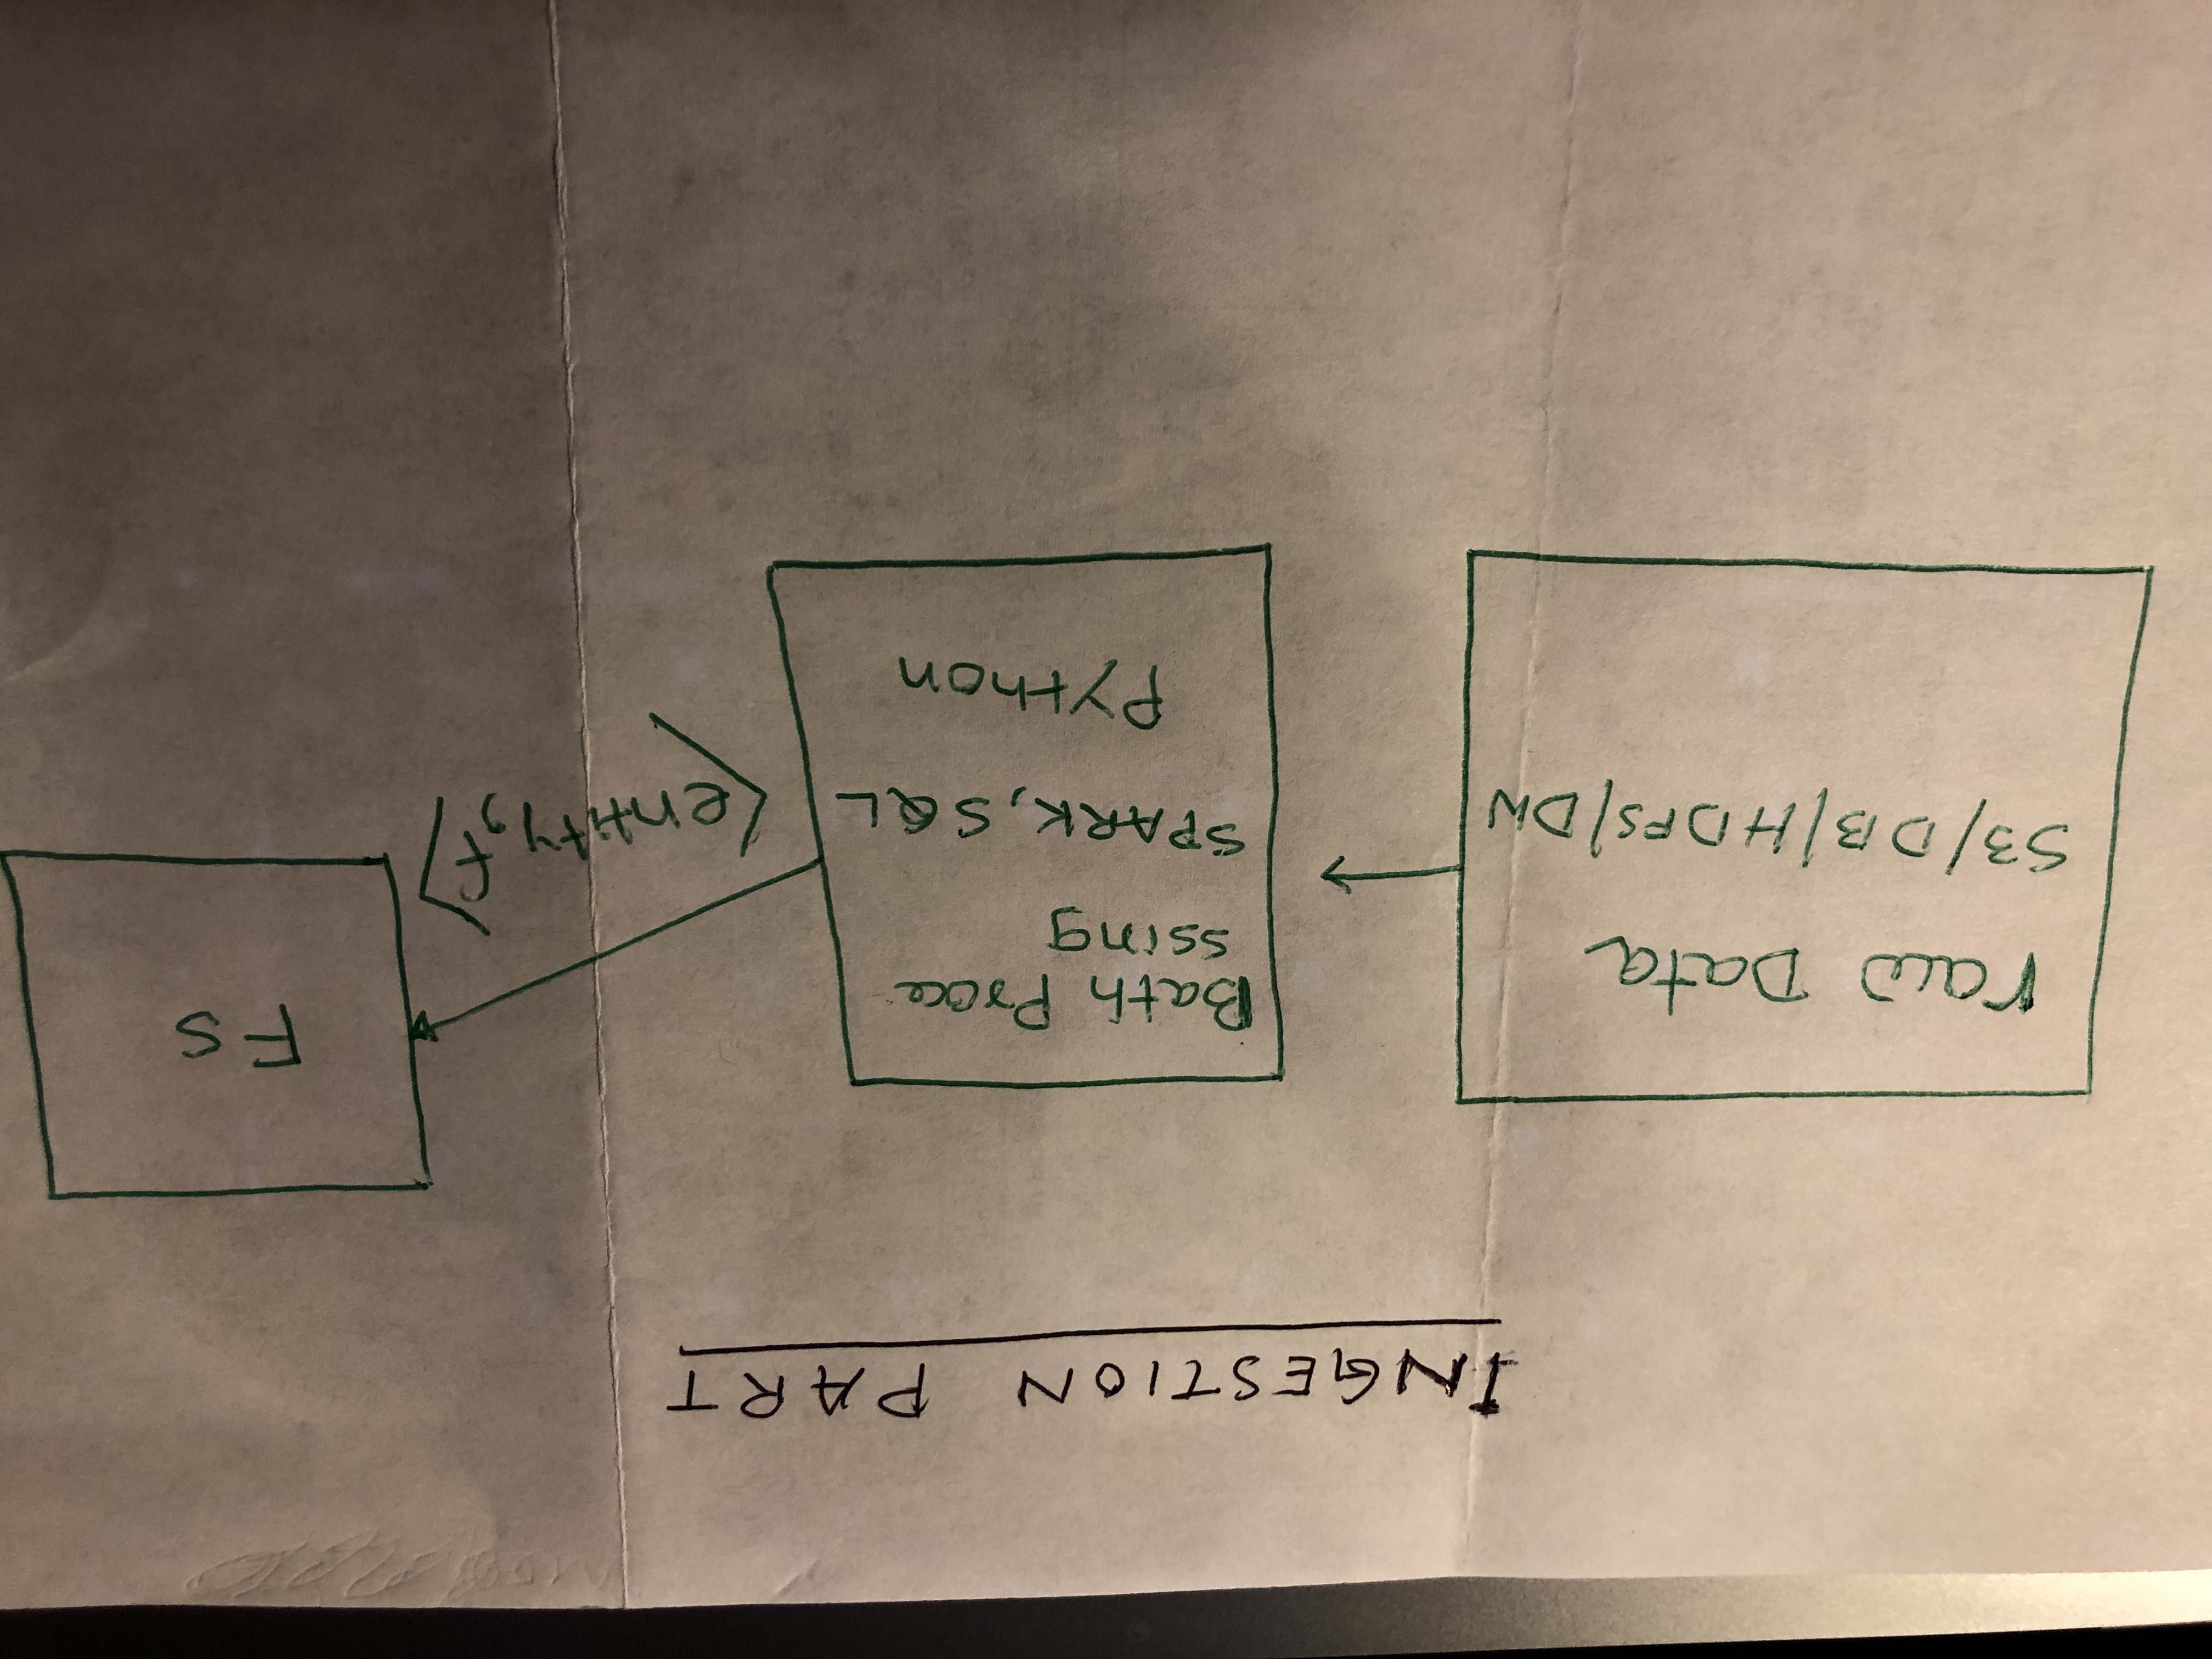 INGESTION PART
raw Data
S3/DB/HDFS/DW
Bath Proce
ssing
SPARK, SQL
Python
<entity, f>
FS